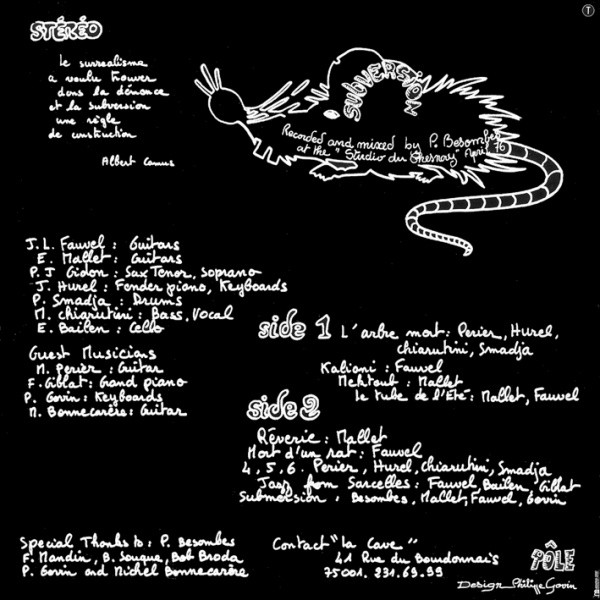 STÉRÉO
T
le surrealisme
a voulu trouver
dans la démence
et la subversion
une règle
de construction
Albert Camus
SUBVERSION
Recorded and mixed by P. Besombes
at the "Studio du Chesnay" April 76
J.L. Fauvel : Guitars
E. Mallet : Guitars
P.J Gidon : Sax Tenor, soprano
J. Hurel : Fender piano, Keyboards
P. Smadja : Drums
M. Chiarutini : Bass, Vocal
E. Bailen : Cello
Guest Musicians
M. Perier : Guitar
F. Giblat : Grand piano
P. Govin : Keyboards
M. Bonnecarère : Guitar
side 1 L'arbre mort : Perier, Hurel,
Chiarutini, Smadja
Kalioni : Fauvel
Mektoub : Mallet
Le tube de l'Eté : Mallet, Fauvel
side 2
Rêverie : Mallet
Mort d'un rat : Fauvel
4, 5, 6. Perier, Hurel, Chiarutini, Smadja
Jazz from Sarcelles : Fauvel, Bailen, Giblat
Submersion : Besombes, Mallet, Fauvel, Govin
Special Thanks to : P. Besombes
F. Mandin, B. Souque, Bob Broda
P. Govin and Michel Bonnecarère
Contact "la Cave"
41 Rue du Bourdonnais
75001. 231.69.99
PÔLE
Design Philippe Govin